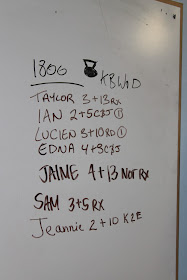 1800 KB WOD
TAYLOR 3+13 RX
IAN 2+5 C&J ①
LUCIEN 3+10 RD ①
EDNA 4+3 C&J
JAIME 4+13 NOT RX
SAM 3+5 RX
Jeannie 2+10 K2E